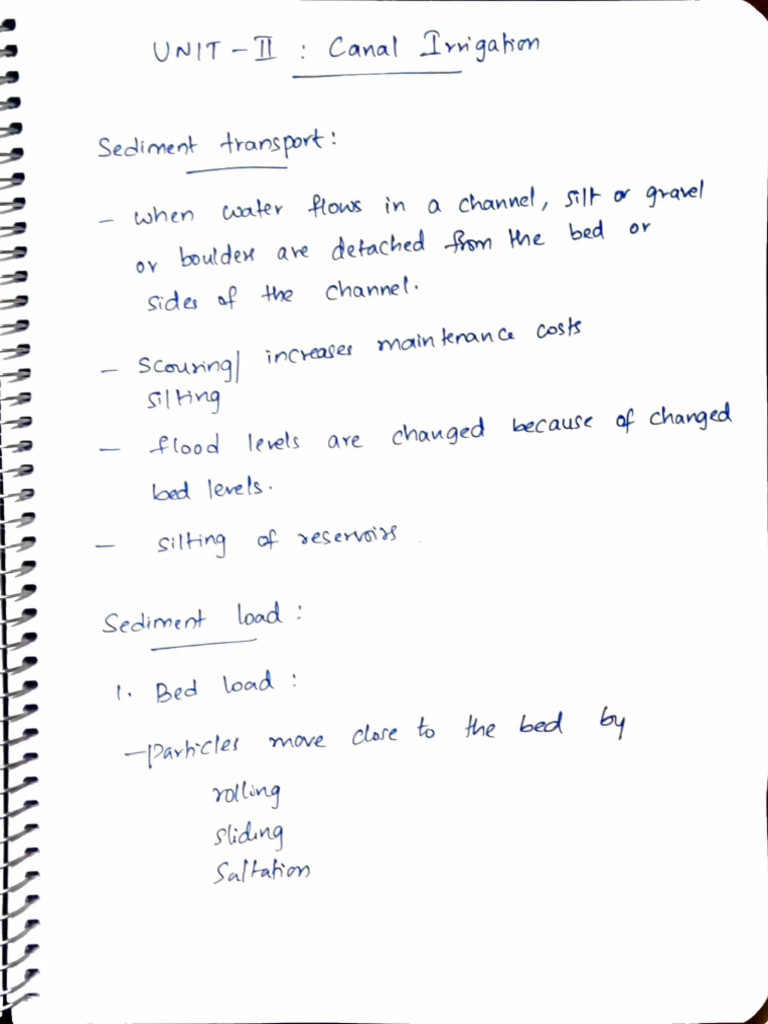 UNIT - II : Canal Irrigation
Sediment transport:
- When water flows in a channel, silt or gravel
or boulders are detached from the bed or
sides of the channel.
- Scouring/ increases maintenance costs
silting
- flood levels are changed because of changed
bed levels.
- silting of reservoirs
Sediment load :
1. Bed load :
- Particles move close to the bed by
rolling
sliding
Saltation